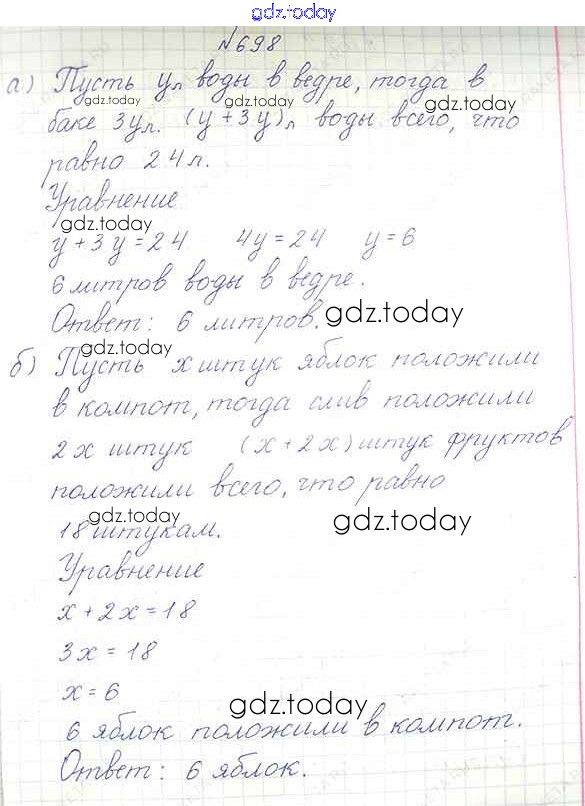 gdz.today
№698
а) Пусть y л воды в ведре, тогда в
gdz.today gdz.today gdz.today
баке 3y л. (y + 3y) л воды всего, что
равно 24 л.
Уравнение
gdz.today
y + 3y = 24 4y = 24 y = 6
6 литров воды в ведре.
Ответ: 6 литров. gdz.today
gdz.today
б) Пусть x штук яблок положили
в компот, тогда слив положили
2x штук (x + 2x) штук фруктов
положили всего, что равно
gdz.today gdz.today
18 штукам.
Уравнение
x + 2x = 18
3x = 18
x = 6
gdz.today
6 яблок положили в компот.
Ответ: 6 яблок.